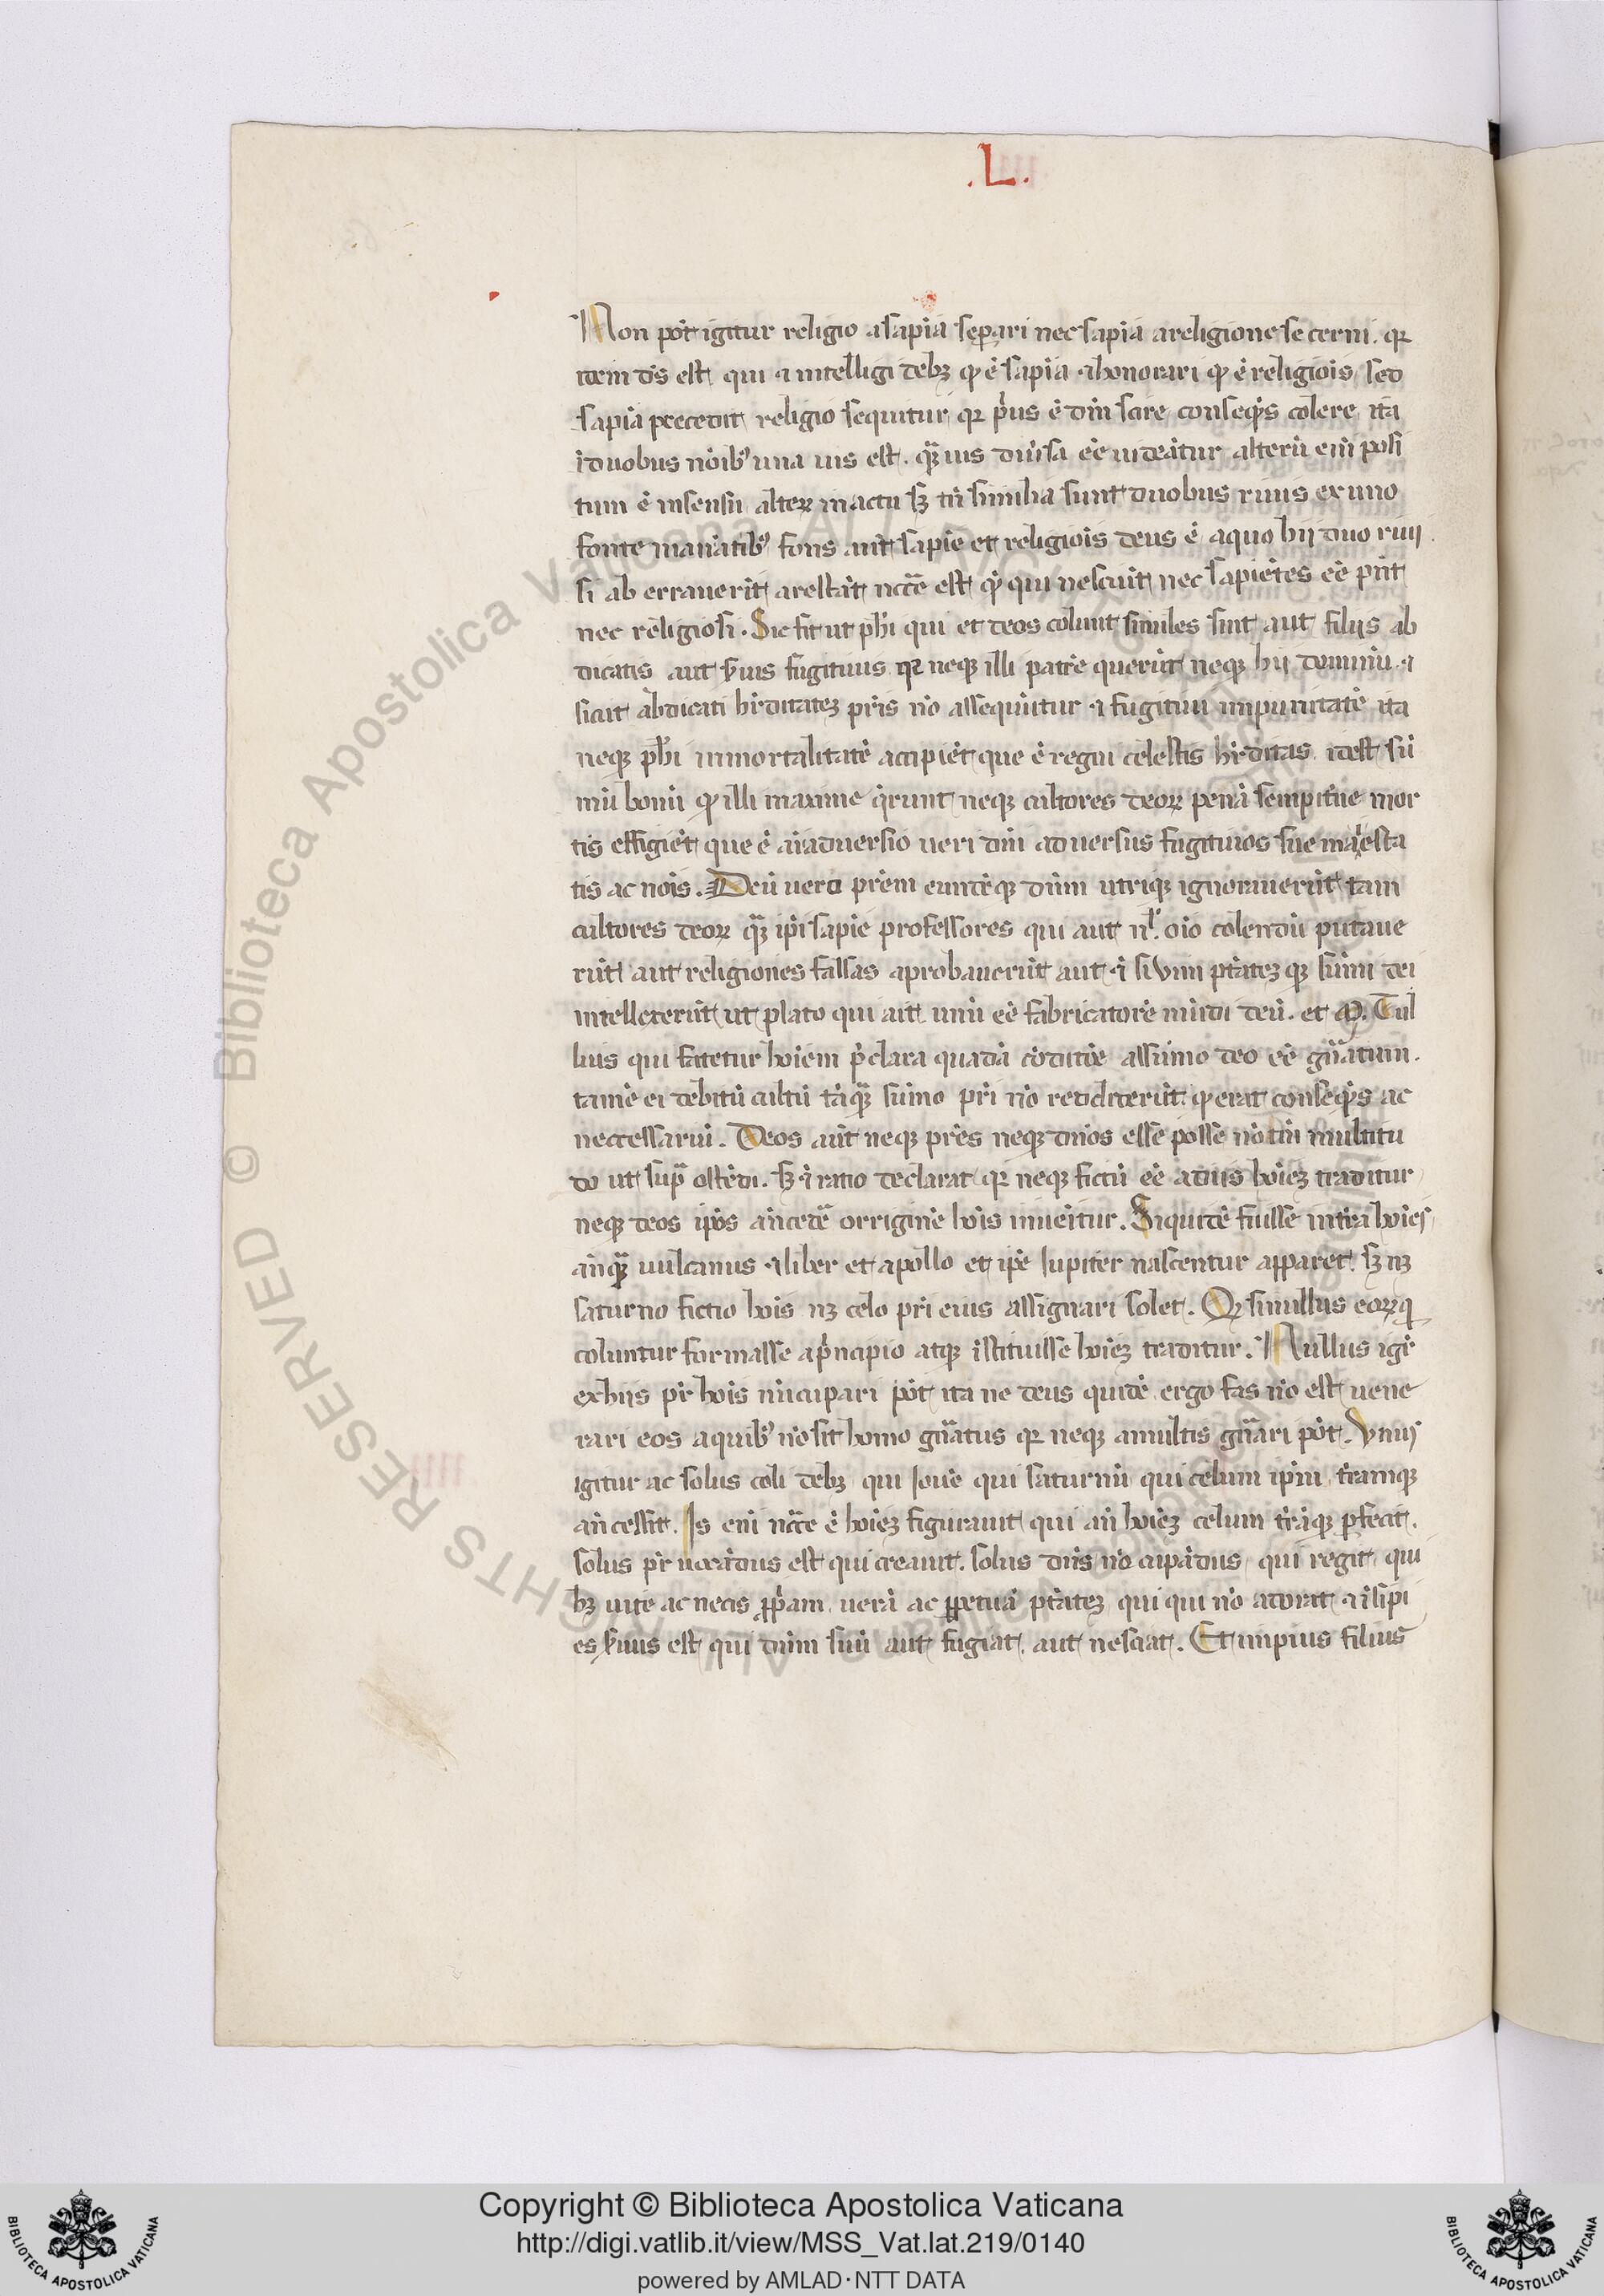 .L.
Non pot̄ igitur religio a sapīa sep̱ari nec sapīa a religione secerni . qꝛ
idem d̄s est qui ⁊ intelligi debꝫ qď ē sapīa ⁊ honorari qď ē religiōis sed
sapīa precedit religio sequitur qꝛ p̄us ē dm̄ scire conseqn̄s colere ita
ī duobus nōibꝰ una uis est . qꝫuis diūsa eē uideātur alterū em̄ posi
tum ē in sensu alterꝝ in actu sꝫ tn̄ similia sunt duobus riuis ex uno
fonte manātibꝰ fons aut̄ sapīe et religiōis deus ē a quo hij duo riuij
si ab errauerit arescāt nc̄ce est qď qui nesciūt nec sapiētes eē pn̄t
nec religiosi . Sic fit ut ph̄i qui et deos colunt similes sint aut filijs ab
dicatis aut s̄uis fugitiuis qꝛ neqꝫ illi patrē querūt neqꝫ hij dominū . ⁊
sicut abdicati hr̄ditatēꝫ pr̄is nō assequūtur ⁊ fugitiui impunitatē ita
neqꝫ ph̄i inmortalitatē accipiēt que ē regni celestis hr̄ditas idest sū
mū bonū qď illi maxime q̄runt neqꝫ cultores deoꝝ penā sempit̄ne mor
tis effigiēt que ē aīaduersio ueri dm̄ aduersus fugitiuos sue maiesta
tis ac nōis . Deū uero prēm eundēqꝫ dnm̄ utriqꝫ ignorauerūt tam
cultores deoꝝ qꝫ ip̄i sapīe professores qui aut nl̄ . oīo colendū putaue
rūt aut religiones falsas aprobauerūt aut ⁊ si uim pt̄atēꝫ qꝫ sūmi dei
intellexerūt ut plato qui ait unū eē fabricatorē mūdi deū . et M . Tul
lius qui fatetur hoīem p̄clara quadā cōditiōe a sūmo deo eē gn̄atum .
tamē ei debitū cultū tāqꝫ sūmo pr̄i nō reddiderūt qď erat conseqn̄s ac
neccessariū . Deos aut̄ neqꝫ prēs neqꝫ dn̄os esse posse nō tm̄ multitu
do ut sup̄ ostēdi . sꝫ ⁊ ratio declarat qꝛ neqꝫ fictū eē a diis hoīēꝫ traditur
neqꝫ deos ip̄os an̄cedē orriginē hōis inueītur . Siquidē fuisse in t̄ra hoīes
an̄qꝫ uulcanus ⁊ liber et apollo et ip̄e Iupiter nascentur apparet . sꝫ nꝫ
saturno fictio hōis nꝫ celo pr̄i eius assignari solet . Qď si nullus eoꝝ q̄
coluntur formasse a p̄ncipio atqꝫ īstituisse hoīēꝫ traditur . Nullus igr̄
ex hijs pr̄ hōis nūcupari pōt ita ne deus quidē ergo fas nō est uene
rari eos a quibꝰ nō sit homo gn̄atus qꝛ neqꝫ a multis gn̄ari pōt . Vnus
igitur ac solus coli debꝫ qui Iouē qui saturnū qui celum ip̄m t̄ramqꝫ
an̄cessit . Is em̄ nc̄ce ē hoīēꝫ figurauit qui an̄ hoīēꝫ celum t̄rāqꝫ p̱fecit .
solus pr̄ uocādus est qui creauit . solus dn̄s nōcupādus qui regit qui
hꝫ uite ac necis ꝓp̄am uerā ac p̱petuā pt̄atēꝫ qui qui nō adorat ⁊ īsipi
es s̄uus est qui dnm̄ suū aut fugiat . aut nesciat . Et impius filius
Copyright © Biblioteca Apostolica Vaticana
http://digi.vatlib.it/view/MSS_Vat.lat.219/0140
powered by AMLAD·NTT DATA